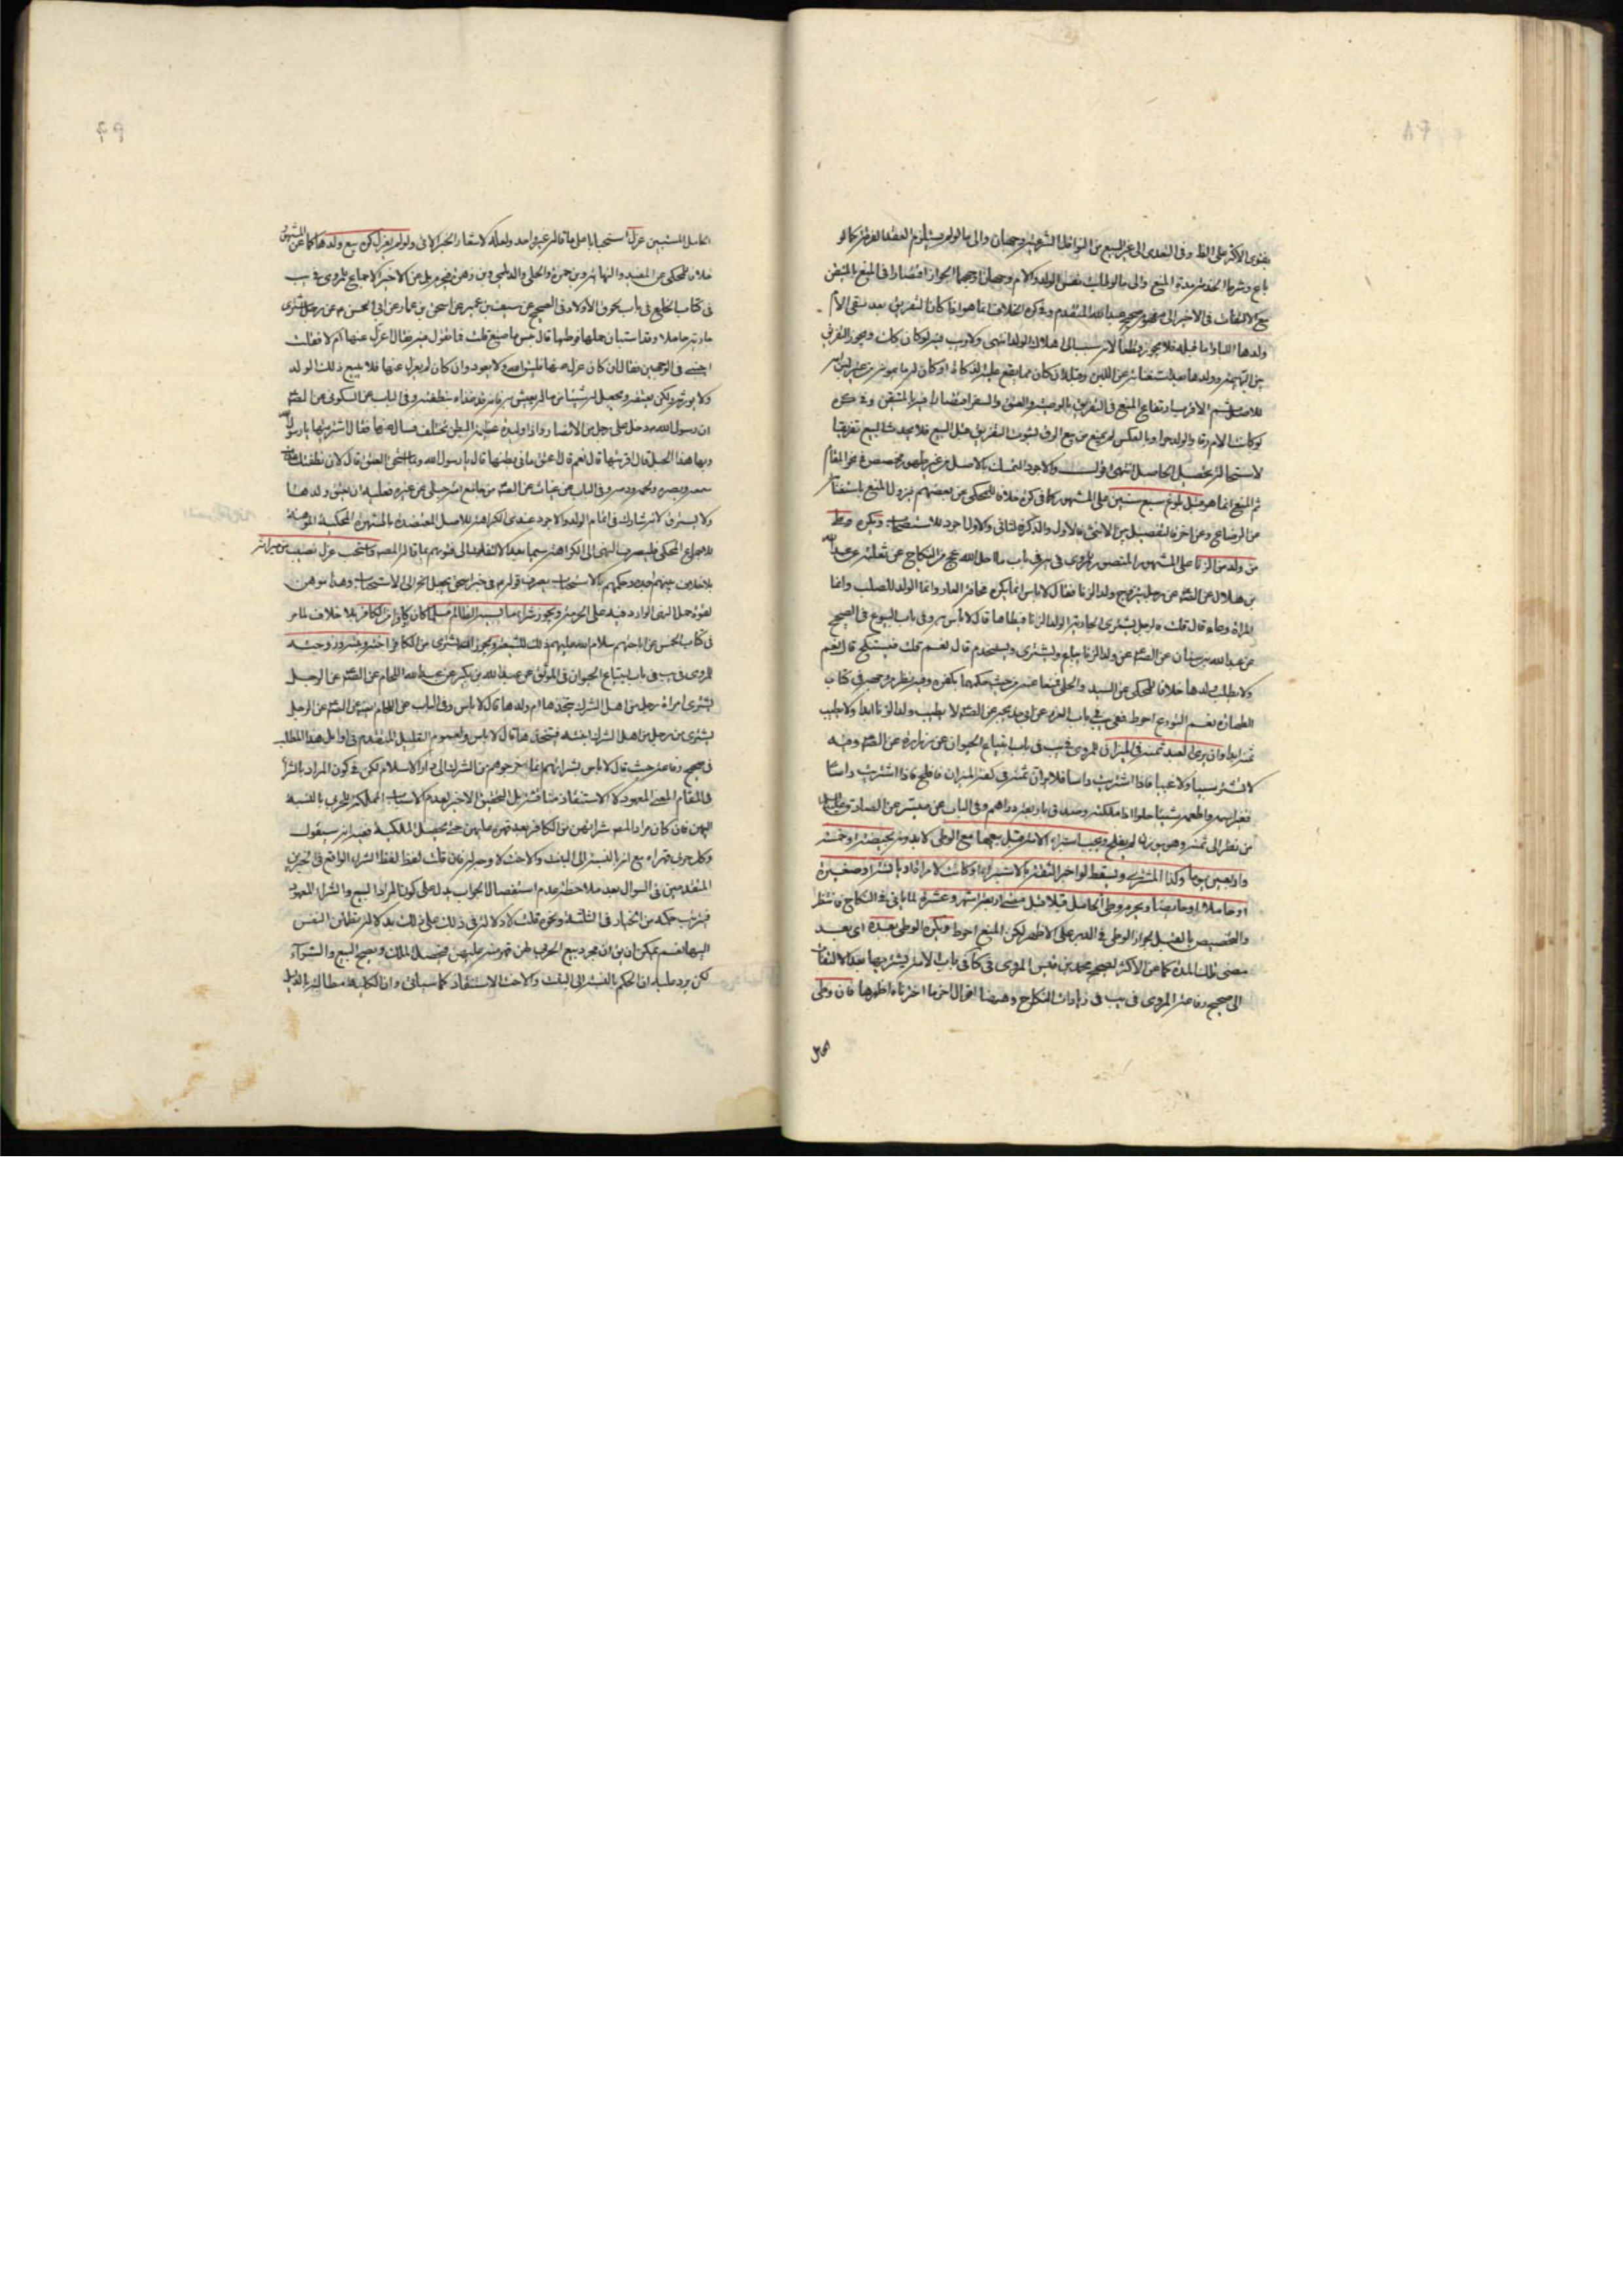 بفتوى الأكثر على الظ وفي التعدي إلى غير البيع من النواقل الشرعية وجهان وإلى ما لو لم يستلزم العقد التفرقة كما لو
باع وشرط الخدمة مدة المنع وإلى ما لو طالت نفس الولد والأم وجهان أوجههما الجواز اقتصارا في المنع بالمتيقن
مع الالتفات في الأخير إلى صحيح عبد الله المتقدم وفي كره الخلاف انما هو إذا كان التفريق بعد سقي الأم
ولدها اللبا واما قبله فلا يجوز قطعا لانه سبب إلى هلاك الولد انتهى ولا ريب فيه لو كان كك ويجوز التفريق
بين البهيمة وولدها بعد استغنائه عن اللبن وقبله ان كان مما يقع عليه الذكاة أو كان له ما يمونه من غير لبن امه
للأصل ثم الأقرب ارتفاع المنع في التفريق بالوصية والعتق والسفر اقتصارا فيه بالمتيقن وفي كره
لو كانت الام رقا والولد حرا وبالعكس لم يمنع من بيع الرق لثبوت التفريق قبل البيع فلا يحدث البيع تفريقا
لاستحالة تحصيل الحاصل انتهى ولا جود التمسك بالأصل من غير مخصص في المقام
ثم المنع انما هو قبل بلوغ سبع سنين على المشهور كما في كره خلافا للمحكي عن بعضهم فيزول المنع باستغنائه
من الرضاع وعن آخر فالتفصيل بين الأنثى فالأول والذكر فالثاني والأول أجود للاستصحاب ويكره وطئ
من ولد من الزنا على المشهور المنصور للمروي في باب ما احل الله عج من النكاح عن ثعلبة وعبد الله
بن هلال عن الص عن رجل يتزوج ولد الزنا فقال لا باس انما يكره مخافة العار وانما الولد للصلب وانما
المرأة وعاء قال قلت فالرجل يشتري الجارية الولد الزنا فيطأها قال لا باس وفي باب البيوع في الصحيح
عن عبد الله بن سنان عن الص عن ولد الزنا يباع ويشترى ويستخدم قال نعم قلت فيستنكح قال نعم
ولا تطلب ولدها خلافا للمحكي عن السيد والحلي فمنعا عنه من حيث حكمهما بكفره وفيه نظر في كتاب
الطهارة نعم التورع احوط ففي باب الغزو عن ابي خديجة عن الص لا يطيب ولد الزنا ابدا ولا يطيب
ثمنه ابدا وان يرى العبد ثمنه في الميزان للمروي في باب ابتياع الحيوان عن زرارة عن الص وفيه
لا تشتر شينا ولا عيبا فإذا اشتريت رأسا فلا يرى ثمنه في كفة الميزان فما افلح فإذا اشتريت رأسا
فغير اسمه واطعمه شيئا حلوا إذا ملكته وصدق عنه باربعة دراهم وفي الباب عن ميسر عن الصادق
من نظر إلى ثمنه وهو يوزن لم يفلح ويجب استبراء الأمة قبل بيعها مع الوطي لا بدونه بحيضة أو خمسة
واربعين يوما وكذا المشتري ويسقط لو اخبر الثقة بالاستبراء أو كانت لامرأة أو يائسة أو صغيرة
أو حاملا أو حائضا ويحرم وطي الحامل قبلا قبل مضي أربعة اشهر وعشرة لما ياتي في النكاح
والتخصيص بالقبل بجواز الوطي في الدبر على الأظهر لكن المنع احوط ويكره الوطي بعده اي بعد
مضي تلك المدة كما عن الأكثر لصحيحة محمد بن قيس المروي في كا في باب الأمة يشتريها بعد الالتفات
إلى صحيح رفاعة المروي في يب في زيادات النكاح وههنا اقوال اخر ما اخترناه اظهرها فان وطئ
الحامل
الحامل استحبابا على ما قاله غير واحد ولعله لاشعار الخبر الآتي ولو لم يعزل كره بيع ولدها كما عن المشهور
خلافا للمحكي عن المفيد والنهاية وبن حمزة والحلي والديلمي وبن زهرة فيحرم بل عن الاخير الاجماع للمروي في يب
في كتاب الخلع في باب لحوق الاولاد في الصحيح عن سيف بن عميرة عن اسحق بن عمار عن أبي الحسن ع عن رجل اشترى
جارية حاملا وقد استبان حملها فوطئها قال بئس ما صنع قلت فما تقول فيه فقال اعزل عنها أم لا فقلت
اجبني في الوجهين فقال ان كان عزل عنها فليتق الله ولا يعود وان كان لم يعزل عنها فلا يبيع ذلك الولد
ولا يورثه ولكن يعتقه ويجعل له شيئا من ماله يعيش به فانه قد غذاه بنطفته وفي الباب عن السكوني عن الص
ان رسول الله دخل على رجل من الأنصار وإذا وليدة عظيمة البطن تختلف فسأل عنها فقال اشتريتها يا رسول الله
وبها هذا الحبل قال اقربتها قال نعم قال اعتق ما في بطنها قال يا رسول الله وبما استحق العتق قال لان نطفتك غذت
سمعه وبصره ولحمه ودمه وفي الباب عن غياث عن الص من جامع امة حبلى من غيره فعليه ان يعتق ولدها
ولا يسترق لانه شارك في اتمام الولد والأجود عندي الكراهة للأصل المعتضدة بالشهرة المحكية الموهنة
للاجماع المحكي فليصرف النهي إلى الكراهة سيما بعد الالتفات إلى فتويهم بما قاله المصنف ويستحب عزل نصيب من ميراثه
بلا خلاف بينهم اجده وحكمهم بالاستحباب يصرف قوله ع في خبر اسحق يجعل اه إلى الاستحباب وهذا موهن
لقوة حمل النهي الوارد فيه على الحرمة ويجوز شراء ما يسبيه الظالم مسلما كان أو كافرا من الكافر بلا خلاف لما مر
في كتاب الخمس من اباحتهم سلام الله عليهم ذلك للشيعة ويجوز ان يشترى من الكافر اخته وبنته وزوجته
للمروي في يب في باب ابتياع الحيوان في الموثق عن عبد الله بن بكير عن عبد الله اللحام عن الص عن الرجل
يشتري امرأة رجل من أهل الشرك يتخذها أم ولد قال لا باس وفي الباب عن اللحام عن الص عن الرجل
يشتري من رجل من أهل الشرك ابنته فيتخذها قال لا باس ولعموم التعليل المتقدم في أوايل هذا المطلب
في صحيح رفاعة حيث قال لا باس بشرائهم انما اخرجوهم من الشرك إلى دار الإسلام لكن في كون المراد بالشراء
في المقام المعنى المعهود أو لا الاستنقاذ مناقشة بل التحقيق الأخير لعدم الاسباب المملكة للحربي بالنسبة
اليهن فان كان مراد المصنف شرائهن من الكافر بعد قهره عليهن حتى يحصل الملكية ففيه انه سيقول
وكل حربي قهر اه مع انه بالنسبة إلى البنت والاخت لا وجه له فان قلت لفظ الشراء الواقع في الخبرين
المتقدمين في السؤال بعد ملاحظة عدم استفصال الجواب يدل على كون المراد البيع والشراء المعهود
فيترتب حكمه من الخيار في الثلثة ونحوه قلت لا دلالة في ذلك على ذلك بدلالة تطمئن النفس
اليها نعم يمكن ان يق ان مجرد بيع الحربي لهن قهر منه عليهن فيحصل الملك ويصح البيع والشراء
لكن يرد عليه ان الحكم بالنسبة إلى البنت والاخت الاستنقاذ كما سيأتي وان الكلية مطالبة بالدليل